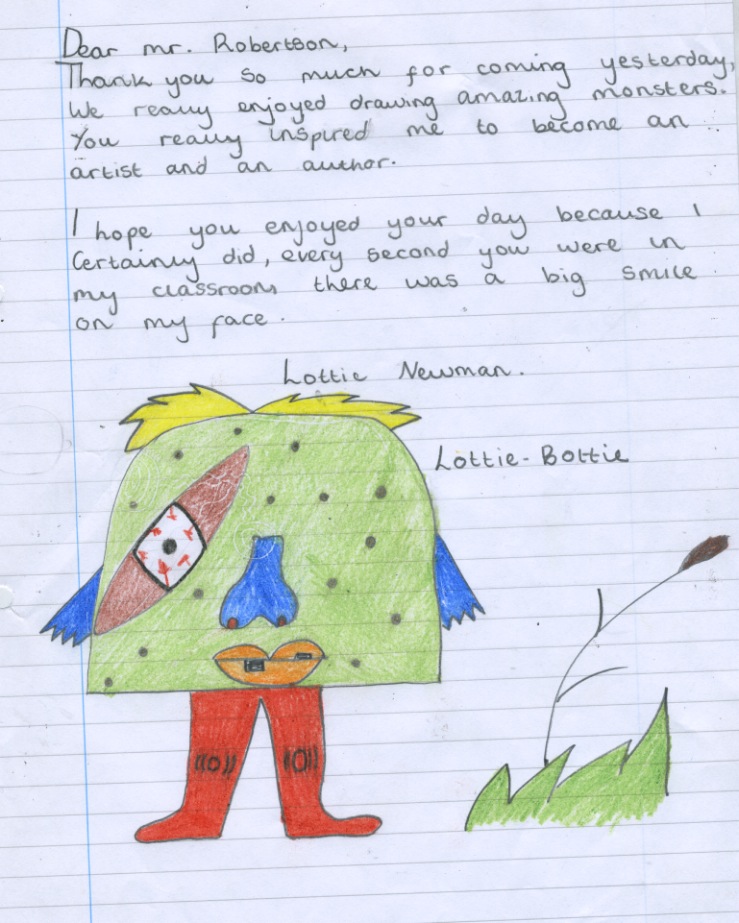 Dear mr. Robertson,
Thank you so much for coming yesterday,
We really enjoyed drawing amazing monsters.
You really inspired me to become an
artist and an author.
I hope you enjoyed your day because I
Certainly did, every second you were in
my classroom there was a big smile
on my face.
Lottie Newman.
Lottie-Bottie